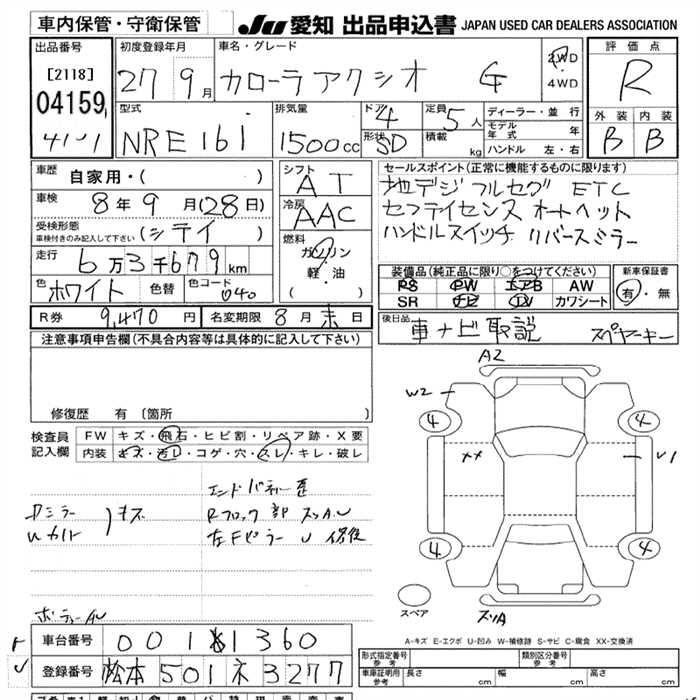 車内保管・守衛保管
JU 愛知 出品申込書 JAPAN USED CAR DEALERS ASSOCIATION
出品番号 初度登録年月 車名・グレード 2WD 4WD 評価点
[2118] 27 9月 カローラアクシオ G R
04159
型式 排気量 ドア 4 定員 5人 ディーラー・並行 外装 内装
41ハ1 NRE161 1500cc 形状 SD 積載 kg モデル年式 年 B B
ハンドル 左・右
車歴 自家用・( ) シフト AT セールスポイント(正常に機能するものに限ります)
車検 8年9月(28日) 冷房 AAC 地デジ フルセグ ETC
受検形態 車検付きのみ記入して下さい (シティ) セフティセンス オートヘット
走行 6万3千679km 燃料 ガソリン 軽・油 ( ) ハンドルスイッチ リバースミラー
色 ホワイト 色替 色コード 040 装備品(純正品に限り○をつけてください) 新車保証書
PS PW エアB AW 有・無
SR ナビ TV カワシート
R券 9,470円 名変期限 8月末日 後日品 車ナビ取説 スペヤーキー
注意事項申告欄(不具合内容等は具体的に記入して下さい)
A2
W2
4 4
XX U1
修復歴 有 [箇所
検査員記入欄 FW キズ・飛石・ヒビ割・リペア跡・X要
内装 キズ・汚レ・コゲ・穴・スレ・キレ・破レ
4 4
Rフロック部 スリAU
左Fピラー U 修復
スペア スリA
A-キズ E-エクボ U-凹み W-補修跡 S-サビ C-腐食 XX-交換済
車台番号 001 1360
登録番号 松本 501 ネ 3277
形式指定番号 参考 類別区分番号 参考
車庫証明用 参考 長さ cm 幅 cm 高さ cm